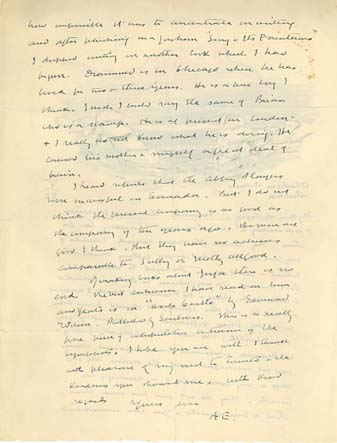 how impossible it was to concentrate on writing
and after publishing in a fashion "Song & Its Fountains"
I stopped writing on another book which I had
begun. Diarmuid is in Chicago where he has
lived for two or three years. He is a nice boy I
think. I wish I could say the same of Brian
who is a scamp. He is at present in London
& I really do not know what he is doing. He
caused his mother & myself a great deal of
pain.
I heard reports that the Abbey Players
were successful in Canada. But I do not
think the present company is as good as
the company of ten years ago. The men are
good I think. But they have no actresses
comparable to Sally or Molly Allgood.
Of making books about there is no
end. The best criticism I have read on him
and Yeats is in "Axel's Castle" by Edmund
Wilson. Published by Scribners. This is a really
fine piece of interpretative criticism of the
symbolists. I hope you are well. I think
with pleasure of my visit to Toronto & the
kindness you showed me. With kind
regards
Yours ever
A.E.